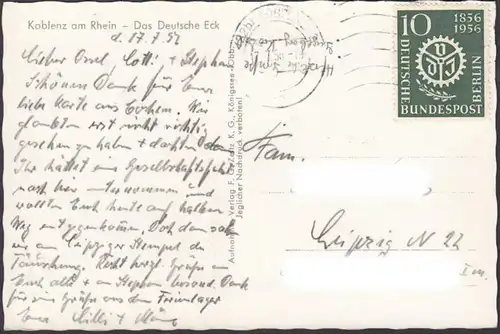 Koblenz am Rhein – Das Deutsche Eck
d. 17.7.57
Lieber Onel, Lotti + Stephan
Schönen Dank für Eure
liebe Karte aus Cochem. Wir
glaubten erst nicht richtig
gesehen zu haben + dachten
Ihr hättet eine Gesellschaftsfahrt
nach hier unternommen und
wollten Euch heute auf halben
Weg entgegenkommen. Doch dann sahen
wir am Leipziger Stempel die
Täuschung. Recht herzl. Grüße an
Euch alle + an Stephan besond. Dank
für die Grüße aus dem Ferienlager
Eure Willi +
Herzliche Grüße
Aufnahme Verlag F. G. Zeitz K. G., Königssee/Obb.
Jeglicher Nachdruck verboten!
10
1856
1956
VDI
DEUTSCHE
BUNDESPOST
BERLIN
Fam.
Leipzig N 22